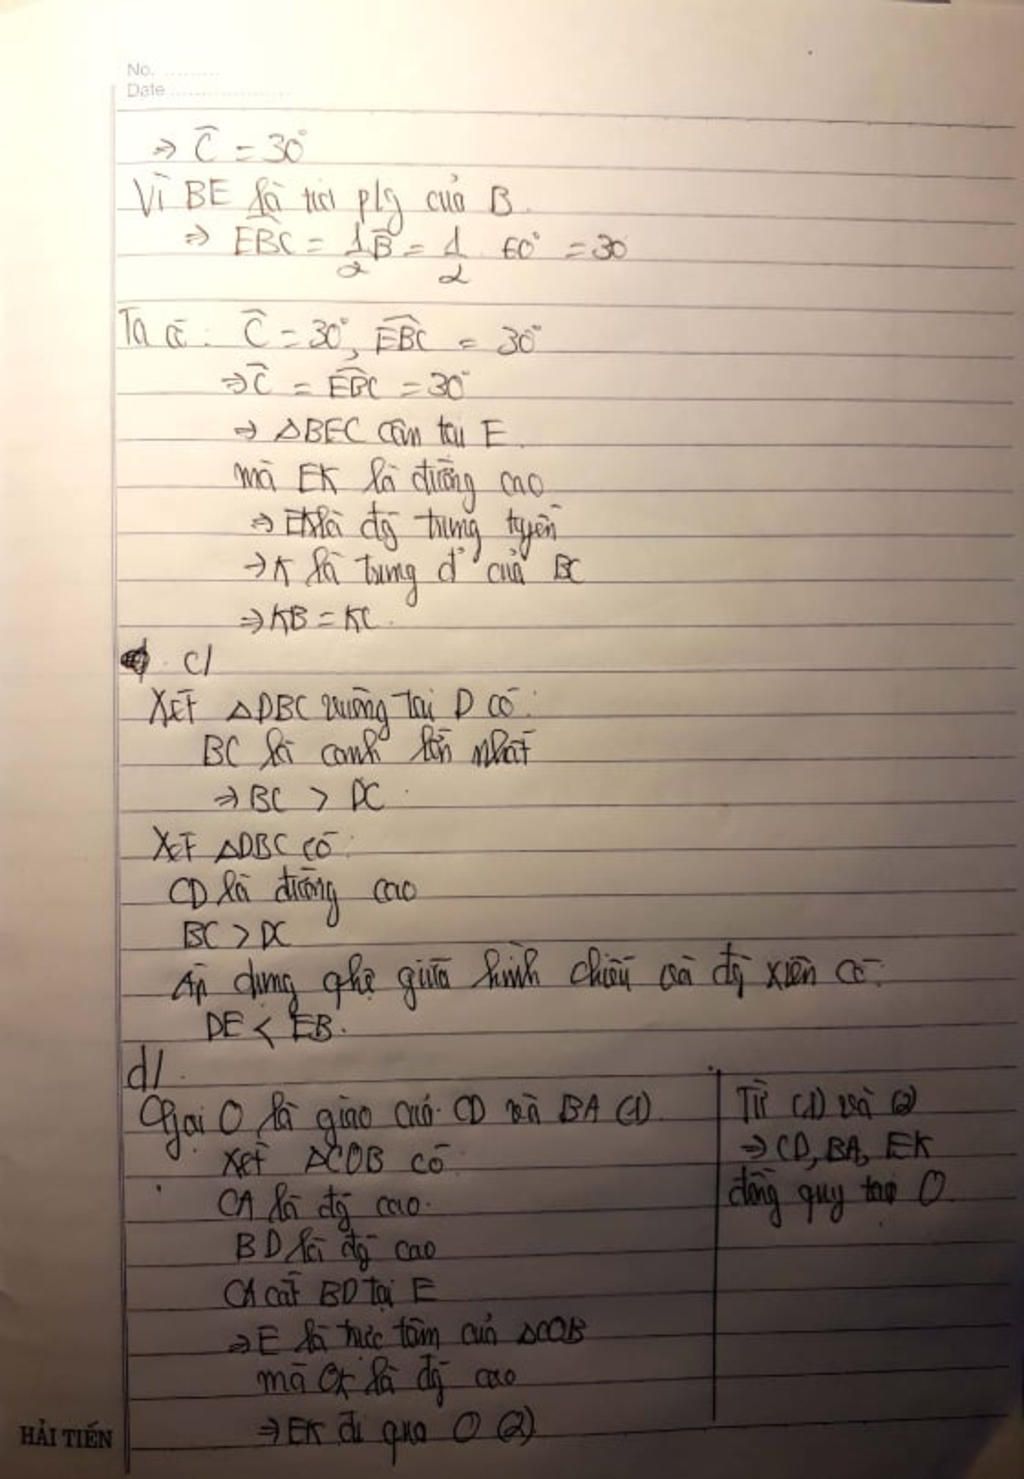 No. ..........
Date ....................
⇒ Ĉ = 30°
Vì BE là tia p/g của B
⇒ EBC = 1/2 B = 1/2 60° = 30
Ta có: Ĉ = 30°, EBC = 30°
⇒ Ĉ = EBC = 30°
⇒ △BEC cân tại E
mà EK là đường cao
⇒ EK là đg trung tuyến
⇒ K là trung đ' của BC
⇒ KB = KC.
c/
Xét △DBC vuông tại D có:
BC là cạnh lớn nhất
⇒ BC > DC.
Xét △DBC có:
CD là đường cao
BC > DC
Áp dụng qhệ giữa hình chiếu và đg xiên có:
DE < EB.
d/
Gọi O là giao của CD và BA (1)
Xét △COB có:
CA là đg cao.
BD là đg cao
CA cắt BD tại E
⇒ E là trực tâm của △COB
mà OK là đg cao
⇒ EK đi qua O (2)
Từ (1) và (2)
⇒ CD, BA, EK
đồng quy tại O
HẢI TIẾN